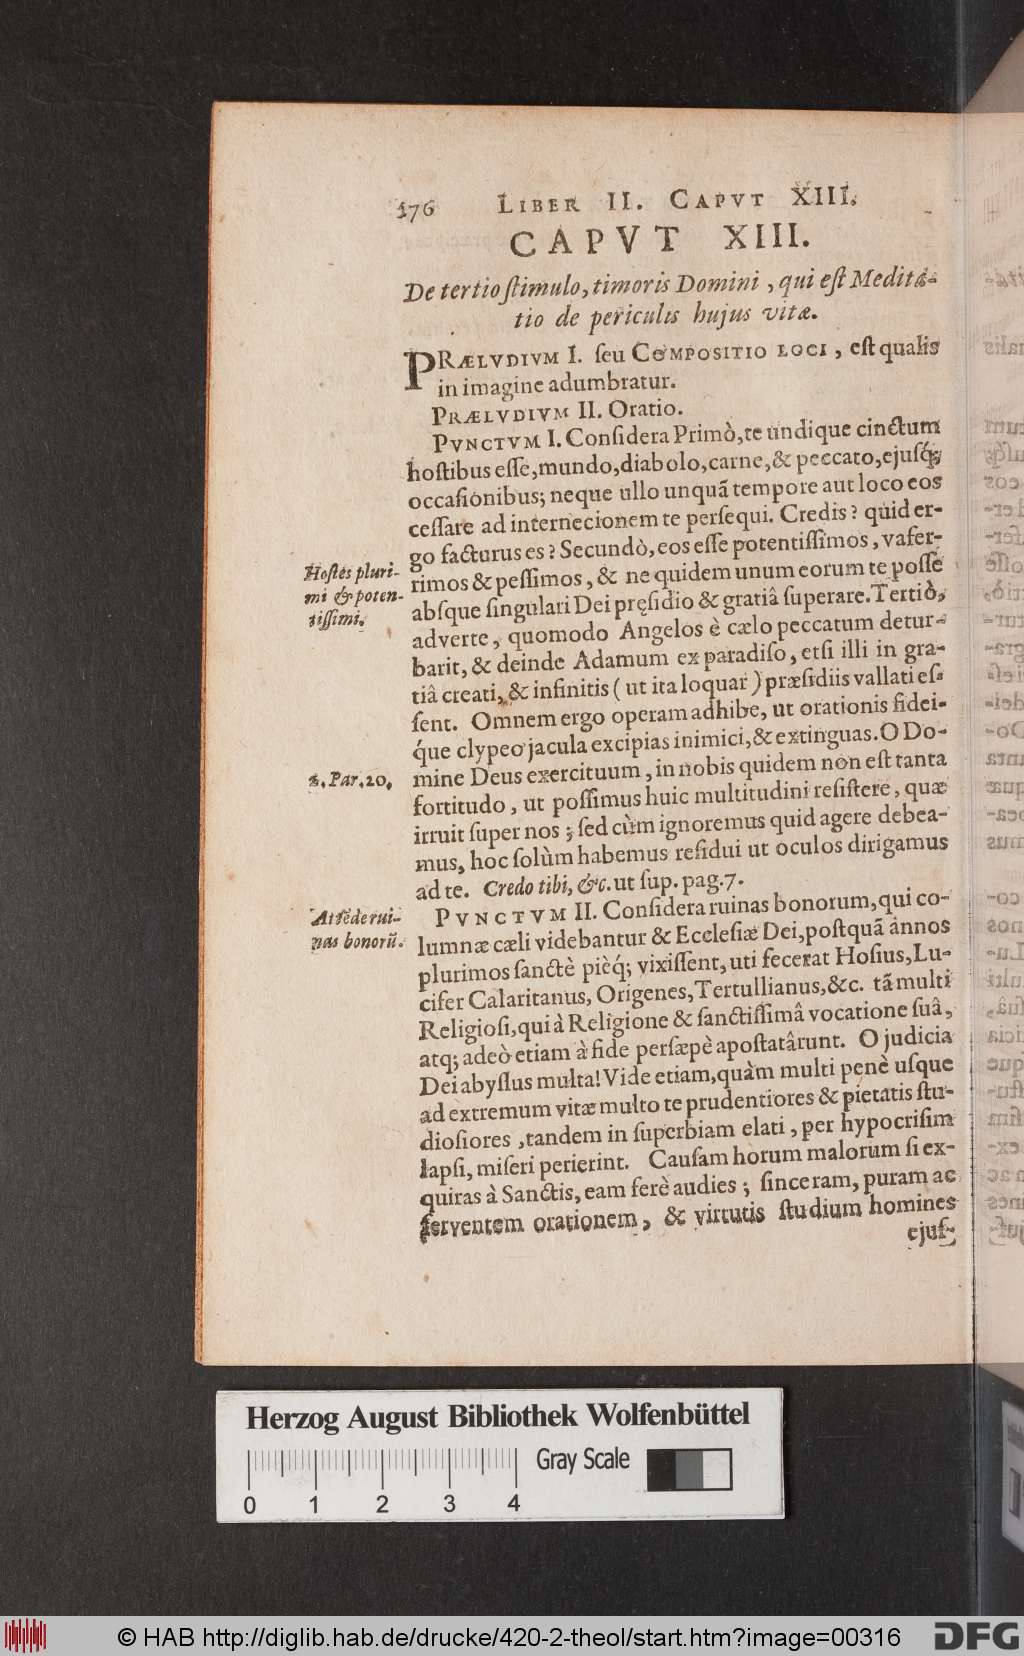 176 LIBER II. CAPVT XIII.
CAPVT XIII.
De tertio ſtimulo, timoris Domini, qui eſt Medita-
tio de periculis hujus vitæ.
PRÆLVDIVM I. ſeu COMPOSITIO LOCI, eſt qualis
in imagine adumbratur.
PRÆLVDIVM II. Oratio.
PVNCTVM I. Conſidera Primò, te undique cinctum
hoſtibus eſſe, mundo, diabolo, carne, & peccato, ejuſq́;
occaſionibus; neque ullo unquã tempore aut loco eos
ceſſare ad internecionem te perſequi. Credis? quid er-
go facturus es? Secundò, eos eſſe potentiſſimos, vafer-
Hoſtes pluri-
mi & poten-
tiſſimi.
rimos & peſſimos, & ne quidem unum eorum te poſſe
abſque ſingulari Dei pręſidio & gratiâ ſuperare. Tertiò,
adverte, quomodo Angelos è cælo peccatum detur-
barit, & deinde Adamum ex paradiſo, etſi illi in gra-
tiâ creati, & infinitis (ut ita loquar) præſidiis vallati eſ-
ſent. Omnem ergo operam adhibe, ut orationis fidei-
q́ue clypeo jacula excipias inimici, & extinguas. O Do-
2. Par. 20.
mine Deus exercituum, in nobis quidem non eſt tanta
fortitudo, ut poſſimus huic multitudini reſiſtere, quæ
irruit ſuper nos; ſed cùm ignoremus quid agere debea-
mus, hoc ſolùm habemus reſidui ut oculos dirigamus
ad te. Credo tibi, &c. ut ſup. pag. 7.
Attẽde rui-
nas bonorũ.
PVNCTVM II. Conſidera ruinas bonorum, qui co-
lumnæ cæli videbantur & Eccleſiæ Dei, poſtquã annos
plurimos ſanctè pièq́; vixiſſent, uti fecerat Hoſius, Lu-
cifer Calaritanus, Origenes, Tertullianus, &c. tã multi
Religioſi, qui à Religione & ſanctiſſimâ vocatione ſuâ,
atq; adeò etiam à fide perſæpè apoſtatârunt. O judicia
Dei abyſſus multa! Vide etiam, quàm multi penè uſque
ad extremum vitæ multo te prudentiores & pietatis ſtu-
dioſiores, tandem in ſuperbiam elati, per hypocriſim
lapſi, miſeri perierint. Cauſam horum malorum ſi ex-
quiras à Sanctis, eam ferè audies; ſinceram, puram ac
ferventem orationem, & virtutis ſtudium homines
ejuſ-
Herzog August Bibliothek Wolfenbüttel
Gray Scale
0 1 2 3 4
© HAB http://diglib.hab.de/drucke/420-2-theol/start.htm?image=00316
DFG